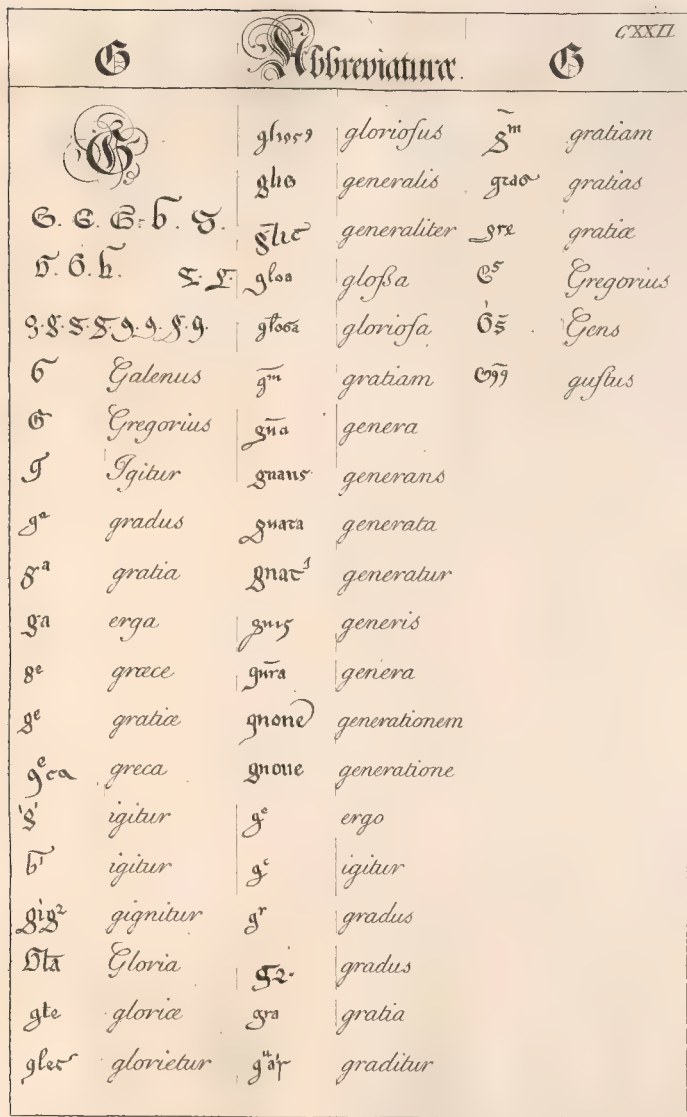 CXXII
G Abbreviaturæ. G
G
G. G. G. G. G.
G. G. G. g. g.
g. g. g. g. g. g. g. g.
G Galenus
G Gregorius
g Igitur
gᵃ gradus
gᵃ gratia
ga erga
gᵉ græce
gᵉ gratiæ
gᵉca greca
g igitur
igitur
gig² gignitur
Gła Gloria
głe gloriæ
gler glorietur
glios9 gloriosus
glis generalis
glic generaliter
gloa gloßa
głosa gloriosa
gᵐ gratiam
gña genera
gnans generans
gnata generata
gnat generatur
gnis generis
gñra genera
gnone generationem
gnone generatione
gᵉ ergo
gᶜ igitur
gʳ gradus
g2. gradus
gra gratia
graditur
gᵐ gratiam
gras gratias
gre gratiæ
Gregorius
Gens
gustus